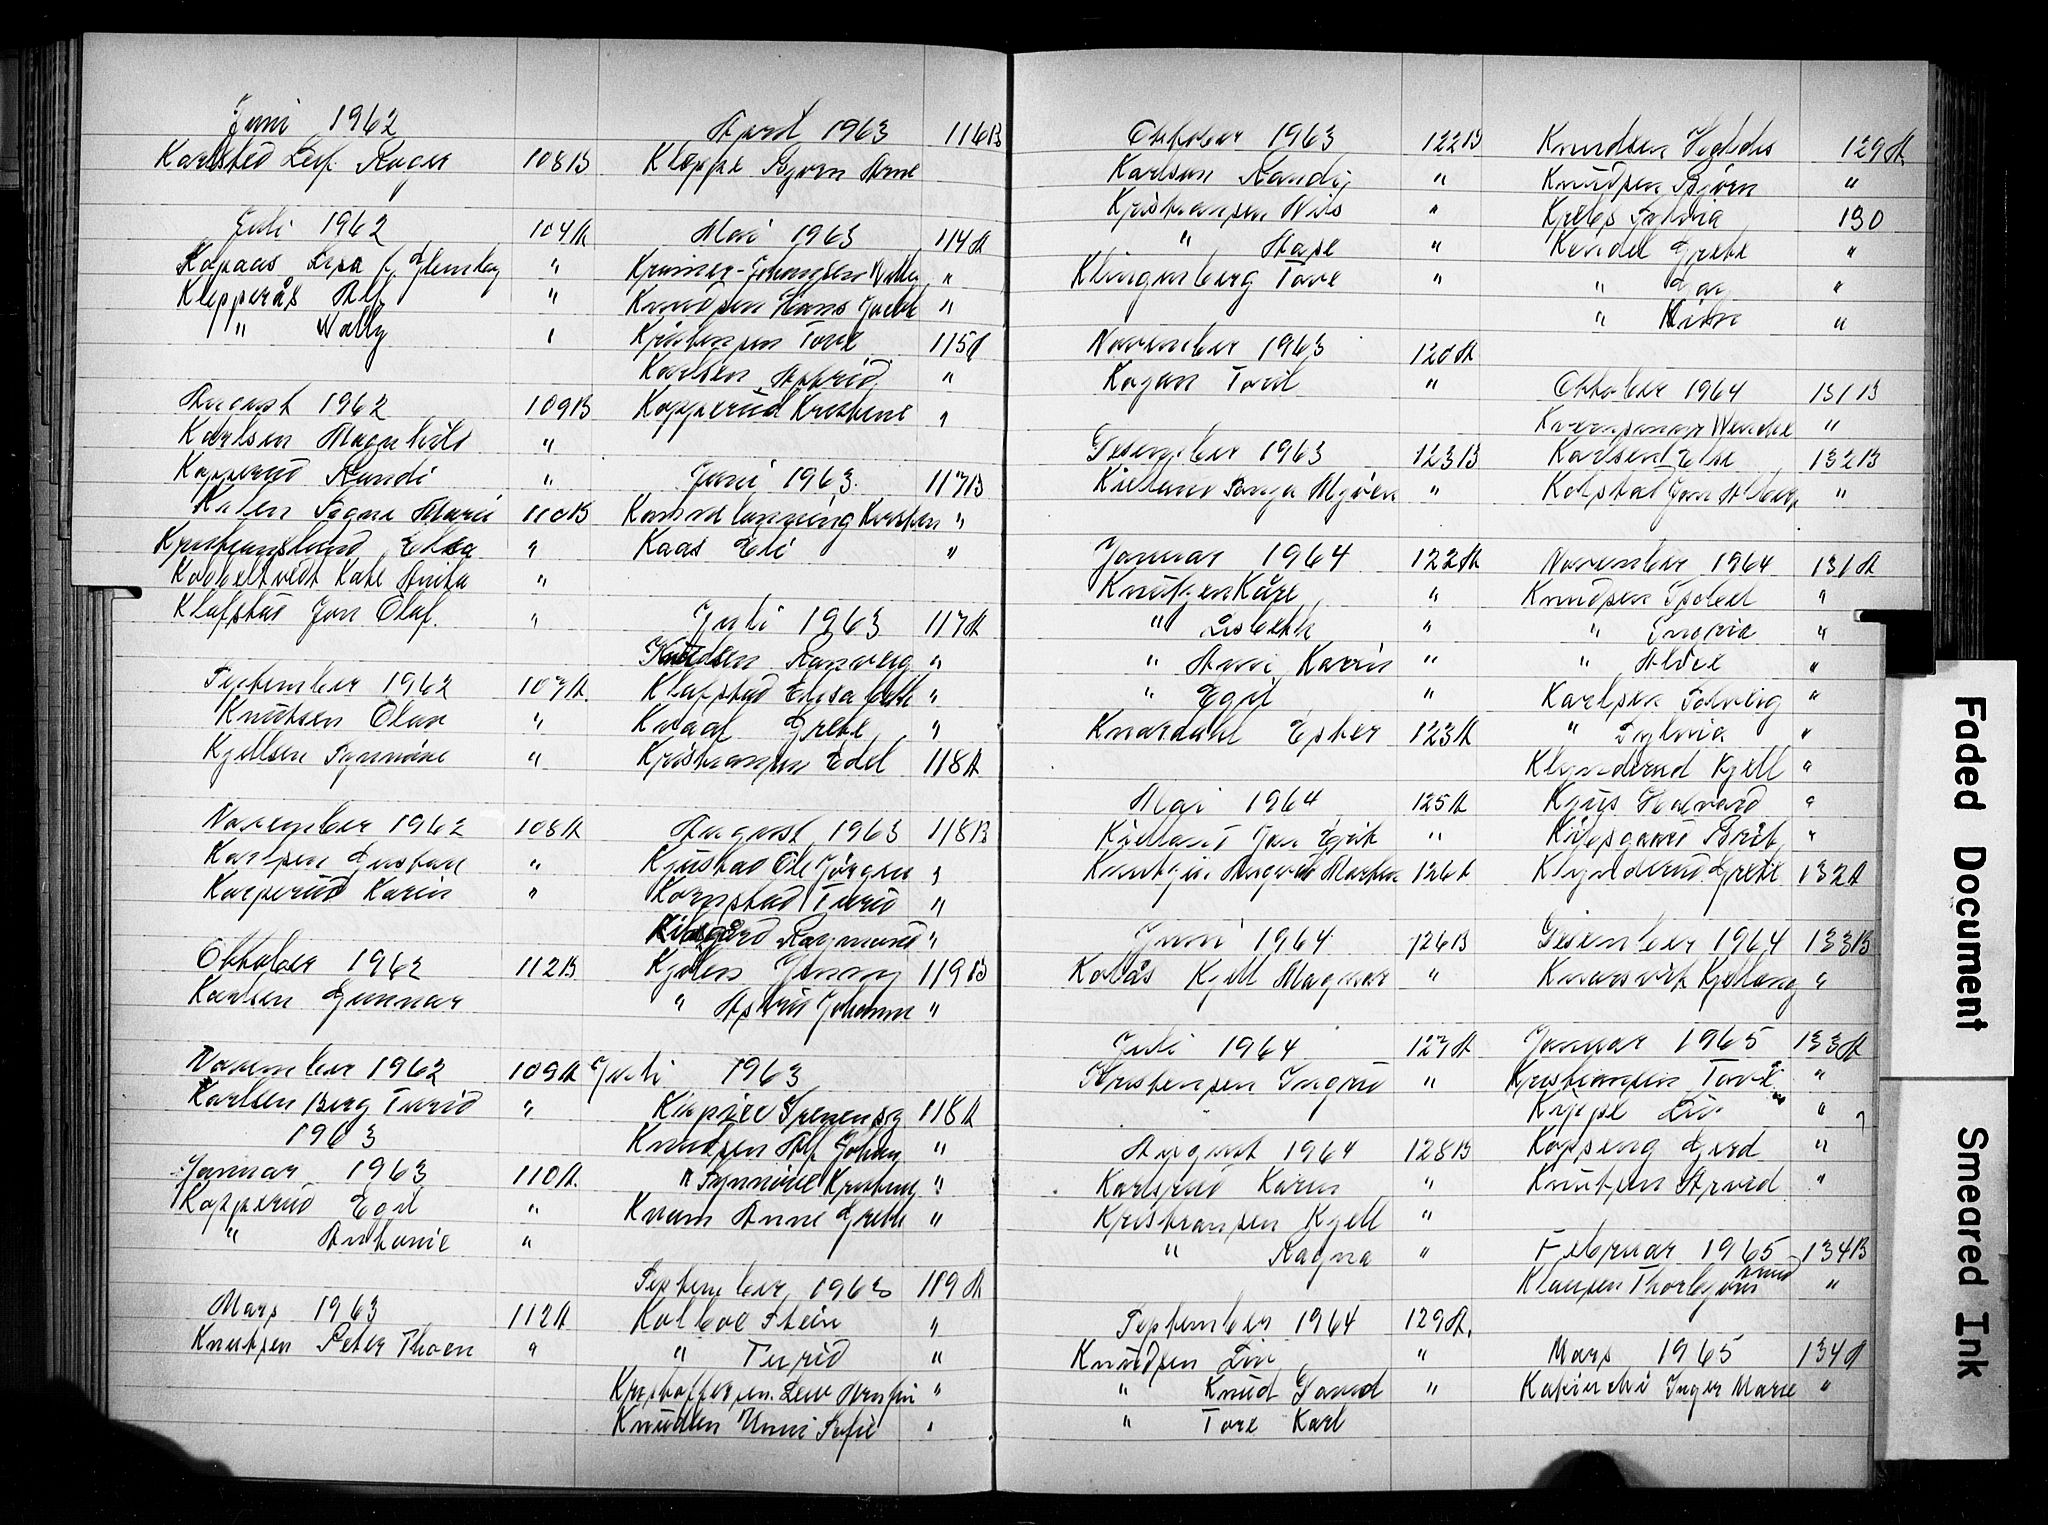 Juni 1962
Karlsted Leif Roger 108B
Juli 1962 104A
Kopaas Lisa f. Glemtey "
Klepperås Alf "
" Nally "
August 1962 109B
Karlsen Magnhild "
Kopperud Randi "
Kilen Signe Marie 110B
Kristianslund Elsa "
Kobbeltvedt Kate Anita "
Klafstad Jon Olaf. "
September 1962 107A
Knutsen Olav "
Kjellsen Synnöve "
November 1962 108A
Karlsen Gustav "
Kopperud Karin "
Oktober 1962 112B
Karlsen Gunnar
November 1962 109A
Karlsen Berg Turid "
1963
Januar 1963 110A
Kopperud Egil "
" Antonie "
Mars 1963 112A
Knutsen Peter Thoen "
April 1963 116B
Kleppe Bjørn Arne
Mai 1963 114A
Kramer-Johansen Wally "
Knudsen Hans Jacob "
Kristensen Tove 115A
Karlsen Astrid "
Kopperud Kristine "
Juni 1963 117B
Kirsten "
Kaas Eli "
Juli 1963 117A
Knudsen Ranveig "
Klafstad Elisabeth "
Kvaal Grete "
Kristiansen Edel 118A
August 1963 118B
Kjustad Ole Jörgen "
Kornstad Turid "
Kilsgård Raymond "
Kjølen Jenny 119B
" Astrid Johanne "
Juli 1963
118A
Knudsen Alf Johan "
" Synnöve Kristine "
Knam Anne Grethe "
September 1963 119A
Kolboe Stein "
" Turid "
Kristoffersen "
Knudsen Unni Sofie "
Oktober 1963 122B
Karlsen Randi "
Kristiansen Nils "
" Aase "
Klingenberg Tove "
November 1963 120A
Kogan Toril "
Desember 1963 123B
Kielland Sonja Mjøen "
Januar 1964 122A
Knutsen Kåre "
" Lisbeth "
" Anne Karin "
" Egil "
Knardahl Ester 123A
Mai 1964 125A
Kielland Jan Erik "
Knutsen Ingvar Morten 126A
Juni 1964 126B
Kolås Kjell Magnar "
Juli 1964 127A
Kristensen Ingrid "
August 1964 128B
Karlsrud Karin "
Kristiansen Kjell "
" Ragna "
September 1964 129A.
Knudsen Liv "
" Knud David "
" Tore Karl
Knudsen Hjördis 129A
Knudsen Björn "
Krebs Sylvia 130
Kendel Grete "
"
" Kim "
Oktober 1964 131B
Wenche "
Karlsen Else 132B
Kolstad Jon Alberg "
November 1964 131A
Knudsen Isobel "
" Ingrid "
" Alvil "
Karlsen Solveig "
" Sylvia "
Klynderud Kjell "
Krüs Halvard "
Kilsgaard Brit "
Klynderud Grete 132A
Desember 1964 133B
Knarsvik Kjellaug "
Januar 1965 133A
Kristiansen Tove "
Krippe Liv "
Kopseng Gerd "
Knutsen Arvid "
Februar 1965 134B
Klausen Thorbjörn "
Mars 1965 134A
Inger Marie "
Faded Document
Smeared Ink